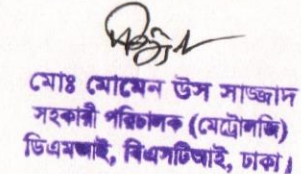 মোঃ মোমেন উস সাজ্জাদ
সহকারী পরিচালক (মেট্রোলজি)
ডিএমআই, বিএসটিআই, ঢাকা।